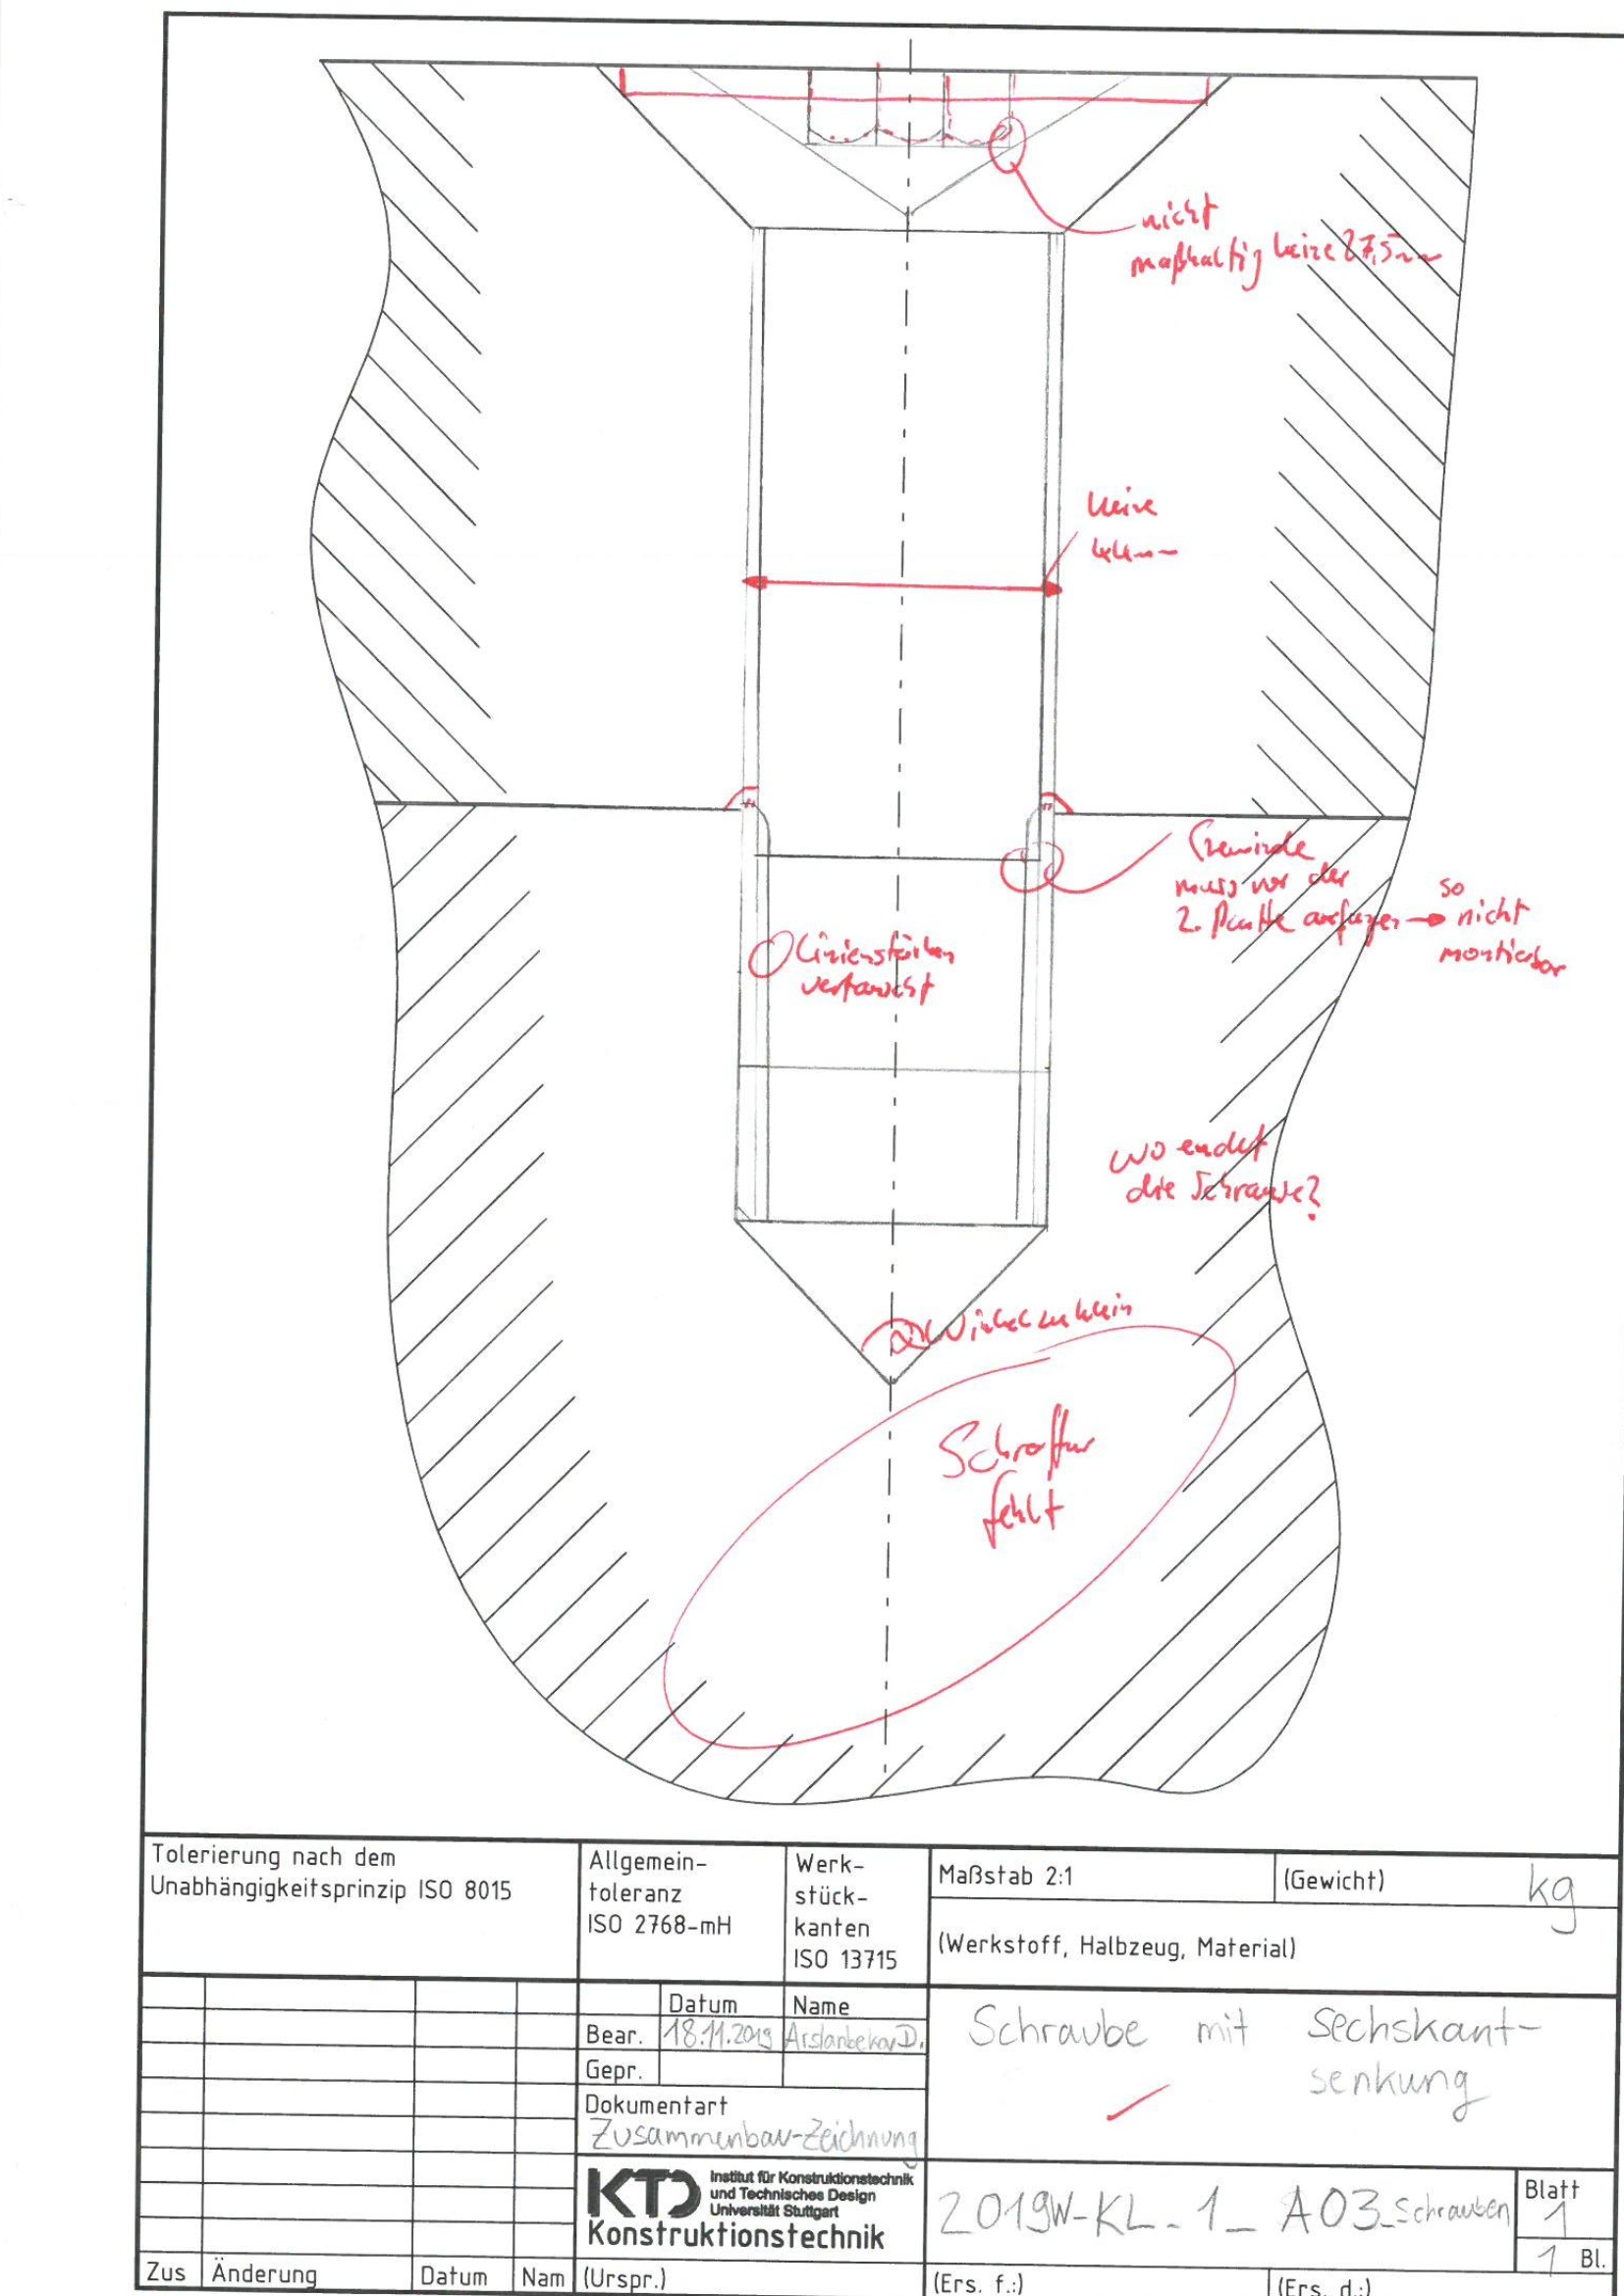 nicht
maßhaltig keine 27,5mm
keine
44mm
Gewinde
muss vor der
2. Platte anfangen → so nicht montierbar
Linienstärken
vertauscht
wo endet
die Schraube?
α Winkel zu klein
Schraffur
fehlt
Tolerierung nach dem
Unabhängigkeitsprinzip ISO 8015
Allgemein-
toleranz
ISO 2768-mH
Werk-
stück-
kanten
ISO 13715
Maßstab 2:1
(Gewicht) kg
(Werkstoff, Halbzeug, Material)
Datum Name
Bear. 18.11.2019 Arslanbekov D.
Gepr.
Dokumentart
Zusammenbau-Zeichnung
Schraube mit Sechskant-
senkung
KTD
Institut für Konstruktionstechnik
und Technisches Design
Universität Stuttgart
Konstruktionstechnik
2019W-KL-1_A03_Schrauben
Blatt
1
1 Bl.
Zus Änderung Datum Nam (Urspr.) (Ers. f.:) (Ers. d.:)